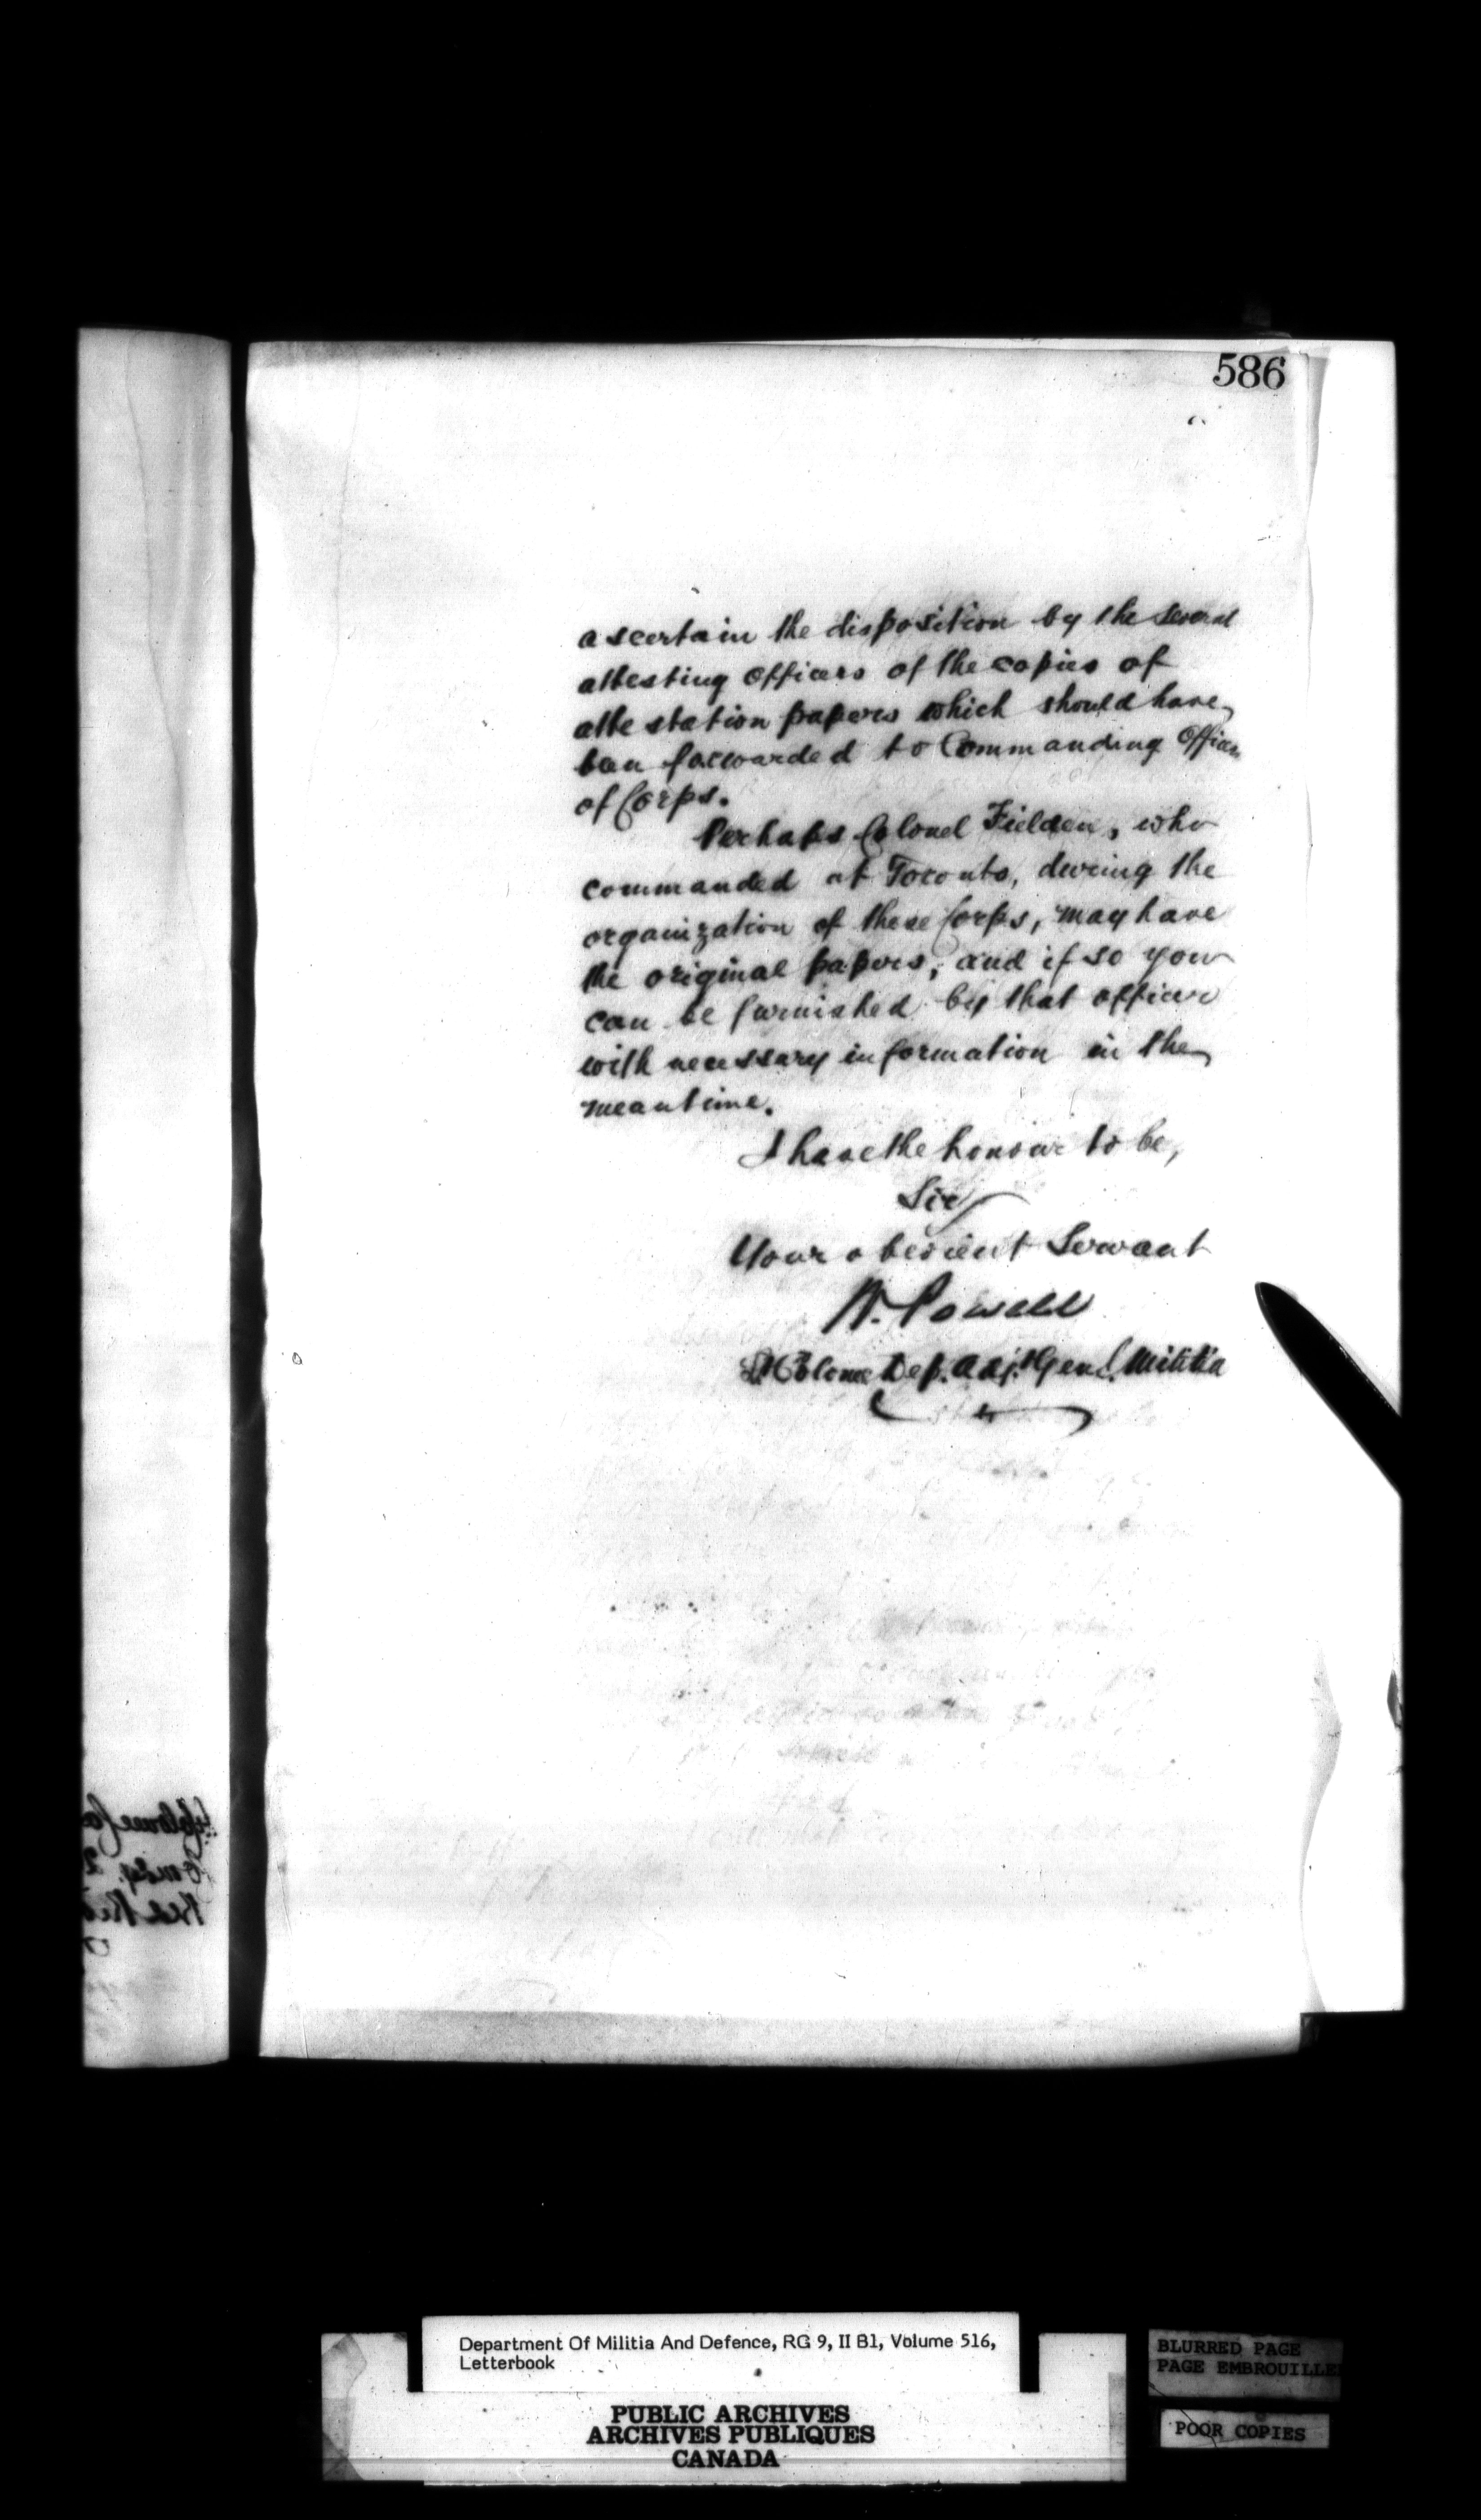 586
ascertain the disposition by the several
attesting Officers of the copies of
attestation papers which should have
been forwarded to Commanding Officers
of Corps.
Perhaps Colonel Fielden, who
commanded at Toronto, during the
organization of these Corps, may have
the original papers, and if so you
can be furnished by that officer
with necessary information in the
meantime.
I have the honour to be,
Sir
Your obedient Servant
W. Powell
Lt Colonel Dep. Adj.t Genl. Militia
Department Of Militia And Defence, RG 9, II B1, Volume 516,
Letterbook
PUBLIC ARCHIVES
ARCHIVES PUBLIQUES
CANADA
BLURRED PAGE
PAGE EMBROUILLEE
POOR COPIES